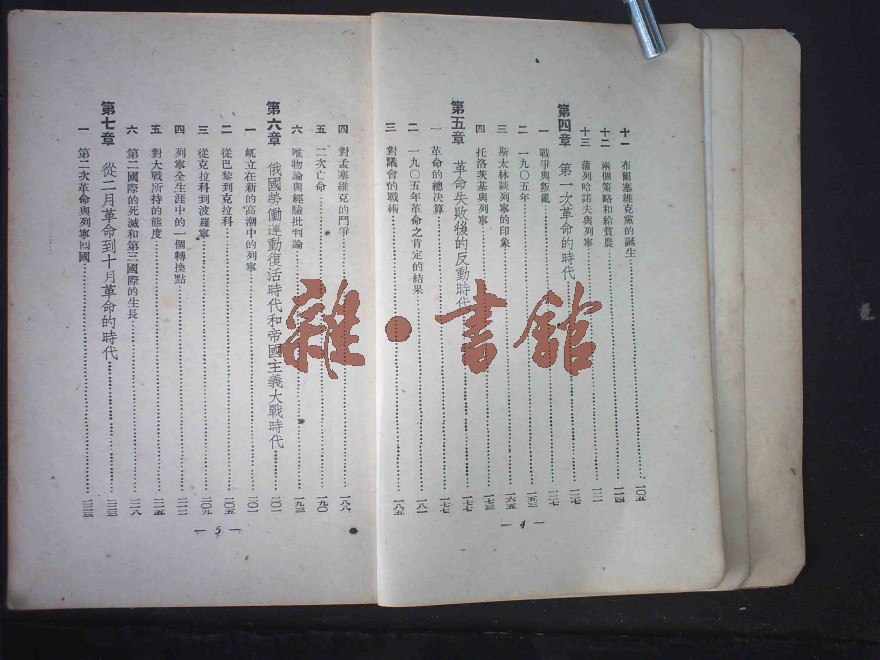 十一 布爾塞維克黨的誕生………一〇五
十二 兩個策略和給貧農………一一四
十三 蒲列哈諾夫與列寧………一二一
第四章 第一次革命的時代………一二七
一 戰爭與叛亂………一二七
二 一九〇五年………一五三
三 斯太林談列寧的印象………一六五
四 托洛茨基與列寧………一七三
第五章 革命失敗後的反動時代………一七七
一 革命的總決算………一七七
二 一九〇五年革命之肯定的結果………一八一
三 對議會的戰術………一八五
— 4 —
四 對孟塞維克的鬥爭………一八六
五 二次亡命………一九〇
六 唯物論與經驗批判論………一九三
第六章 俄國勞働運動復活時代和帝國主義大戰時代………二〇一
一 屹立在新的高潮中的列寧………二〇一
二 從巴黎到克拉科………二〇五
三 從克拉科到波羅寧………二〇九
四 列寧全生涯中的一個轉換點………二一二
五 對大戰所持的態度………二一五
六 第二國際的死滅和第三國際的生長………二一八
第七章 從二月革命到十月革命的時代………二二三
一 第二次革命與列寧回國………二二三
— 5 —
雜·書館